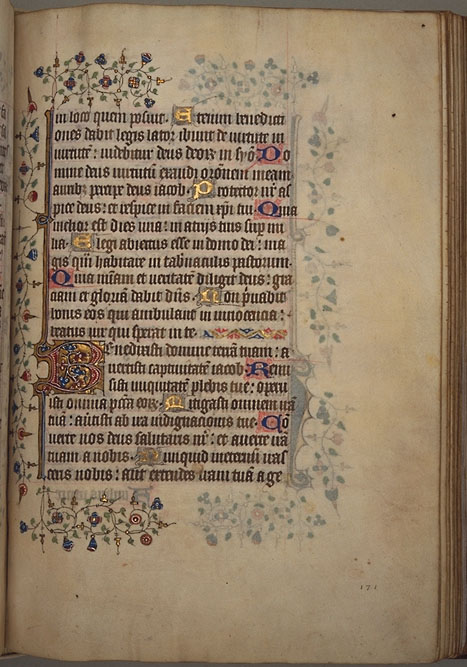 in loco quem posuit. Etenim benedicti
ones dabit legis lator ibunt de virtute in
virtutē: videbitur deus deoꝝ in syō Do
mine deus virtutū exaudi orōnem meam
auribꝫ percipe deus iacob. Protector nr̄ as
pice deus: et respice in faciem xp̄i tui. Quia
melior est dies una: in atrijs tuis sup mi
lia. Elegi abiectus esse in domo dei: ma
gis qm̄ habitare in tabnaculis pctorum.
Quia misam et veritatē diligit deus: gra
ciam et gloriā dabit dn̄s. Non p̄uabit
bonis eos qui ambulant in innocencia:
beatus vir qui sperat in te
Benedixisti domine terrā tuam: a
vertisti captivitatē iacob. Remi
sisti iniquitatē plebis tue: operu
isti omnia pc̄ta eoꝝ. Mitigasti omnem irā
tuā: avtisti ab ira indignacionis tue. Cō
verte nos deus salutaris nr̄: et averte irā
tuam a nobis. Nunquid ineternū iras
ceris nobis: aut extendes iram tuā a ge
171